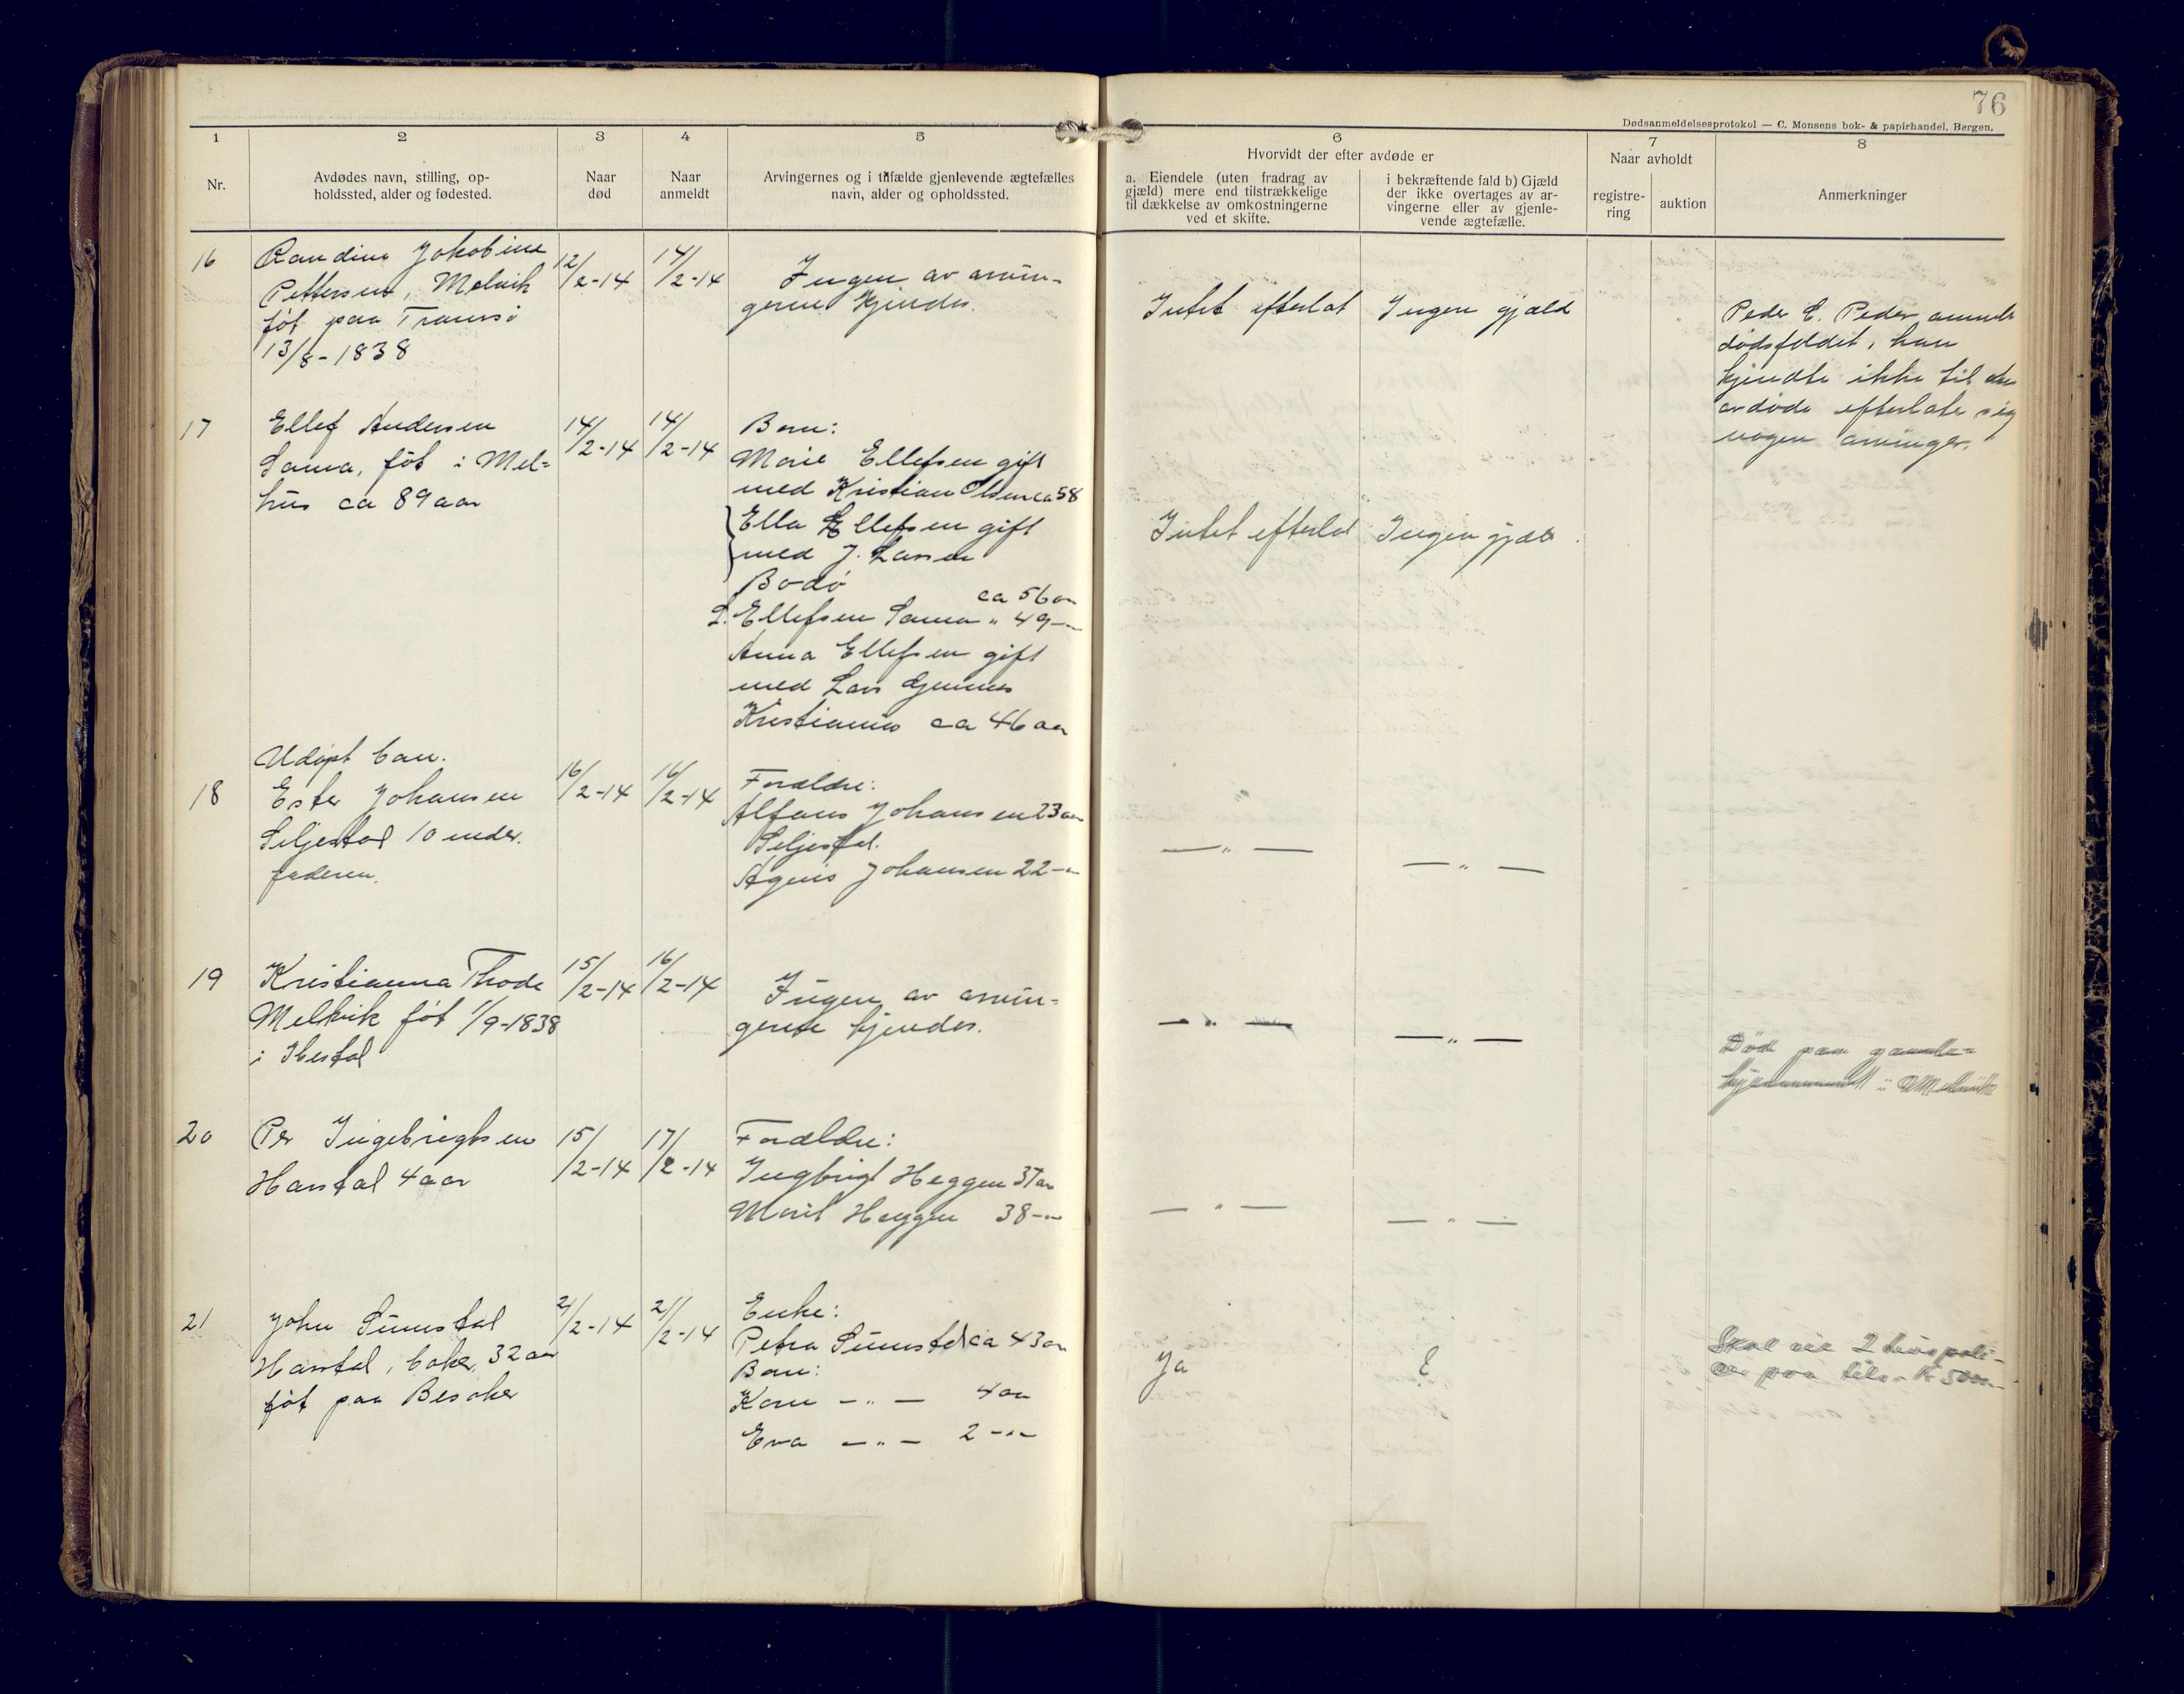 76
Dødsanmeldelsesprotokol — C. Monsens bok- & papirhandel, Bergen.
1 2 3 4 5 6 7 8
Nr.
Avdødes navn, stilling, op-
holdssted, alder og fødested.
Naar
død
Naar
anmeldt
Arvingernes og i tilfælde gjenlevende ægtefælles
navn, alder og opholdssted.
Hvorvidt der efter avdøde er
a. Eiendele (uten fradrag av
gjæld) mere end tilstrækkelige
til dækkelse av omkostningerne
ved et skifte.
i bekræftende fald b) Gjæld
der ikke overtages av ar-
vingerne eller av gjenle-
vende ægtefælle.
Naar avholdt
registre-
ring
auktion
Anmerkninger
16
Randine Jakobine
Pettersen, Melvik
føt paa Tromsö
13/8-1838
12/2-14
14/2-14
Ingen av arvin-
gerne kjendes.
Intet efterlat
Ingen gjæld
Peder E. Peder anmeldt
dødsfaldet, han
kjendte ikke til at
avdøde efterlate sig
nogen arvinger.
17
Ellef Andersen
Sama, føt i Mel-
hus ca 89 aar
14/2-14
14/2-14
Barn:
Marie Ellefsen gift
med Kristian Olsen ca 58
Ella Ellefsen gift
med J. Larsen
Bodö
ca 56 aar
L. Ellefsen Sama " 49 —"—
Anna Ellefsen gift
med Lars
Kristiania ca 46 aar
Intet efterlat
Ingen gjæld
18
Udöpt barn.
Ester Johansen
Seljestad 10 mdr.
faderen.
16/2-14
16/2-14
Forældre:
Alfons Johansen 23 aar
Seljestad.
Agnes Johansen 22 —"—
— " —
— " —
19
Kristianna Thode
Melvik føt 1/9-1838
i Ibestad
15/2-14
16/2-14
Ingen av arvin-
gerne kjendes.
— " —
— " —
Død paa gamle-
hjemmet i Melvik
20
Per Ingebrigtsen
Harstad 4 aar
15/2-14
17/2-14
Forældre:
Ingbrigt Heggen 37 aar
Marit Heggen 38 —"—
— " —
— " —
21
John Sunnstad
Harstad, baker, 32 aar
føt paa Besaker
21/2-14
21/2-14
Enke:
Petra Sunnstad ca 43 aar
Barn:
Kare — " — 4 aar
Eva — " — 2 —"—
Ja
?
Skal eie 2 livspoli-
cer paa tils. Kr 5000.-